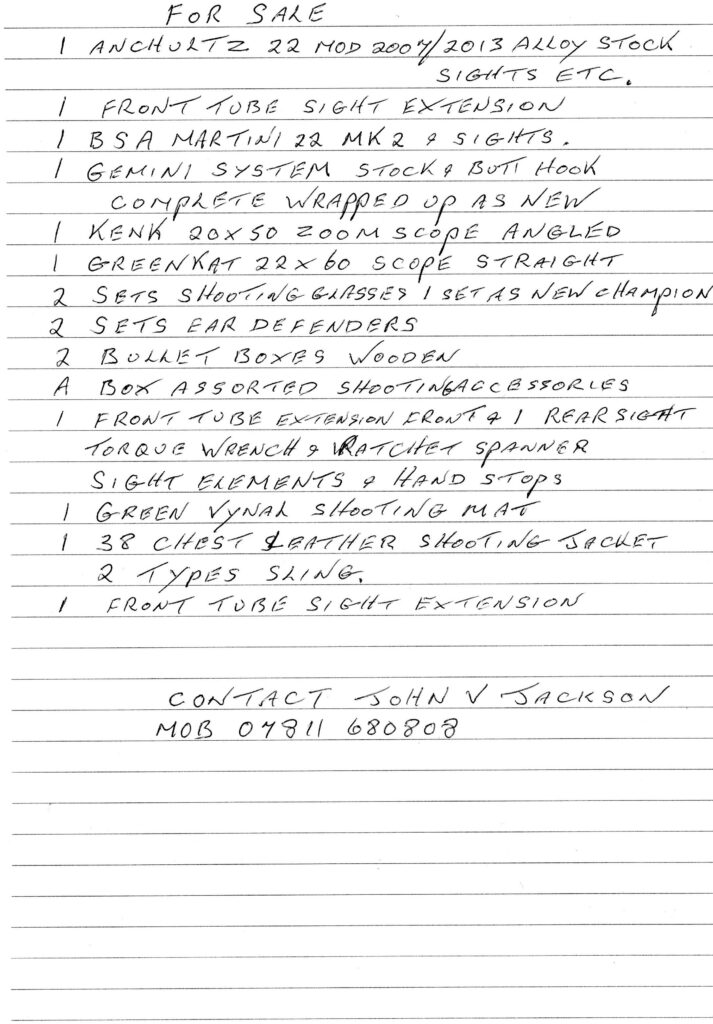 FOR SALE
1 ANCHULTZ 22 MOD 2007/2013 ALLOY STOCK
SIGHTS ETC.
1 FRONT TUBE SIGHT EXTENSION
1 BSA MARTINI 22 MK2 & SIGHTS.
1 GEMINI SYSTEM STOCK & BUTT HOOK
COMPLETE WRAPPED UP AS NEW
1 KENK 20X50 ZOOM SCOPE ANGLED
1 GREENKAT 22X60 SCOPE STRAIGHT
2 SETS SHOOTING GLASSES 1 SET AS NEW CHAMPION
2 SETS EAR DEFENDERS
2 BULLET BOXES WOODEN
A BOX ASSORTED SHOOTING ACCESSORIES
1 FRONT TUBE EXTENSION FRONT & 1 REAR SIGHT
TORQUE WRENCH & RATCHET SPANNER
SIGHT ELEMENTS & HAND STOPS
1 GREEN VYNAL SHOOTING MAT
1 38 CHEST LEATHER SHOOTING JACKET
2 TYPES SLING.
1 FRONT TUBE SIGHT EXTENSION
CONTACT JOHN V JACKSON
MOB 07811 680808